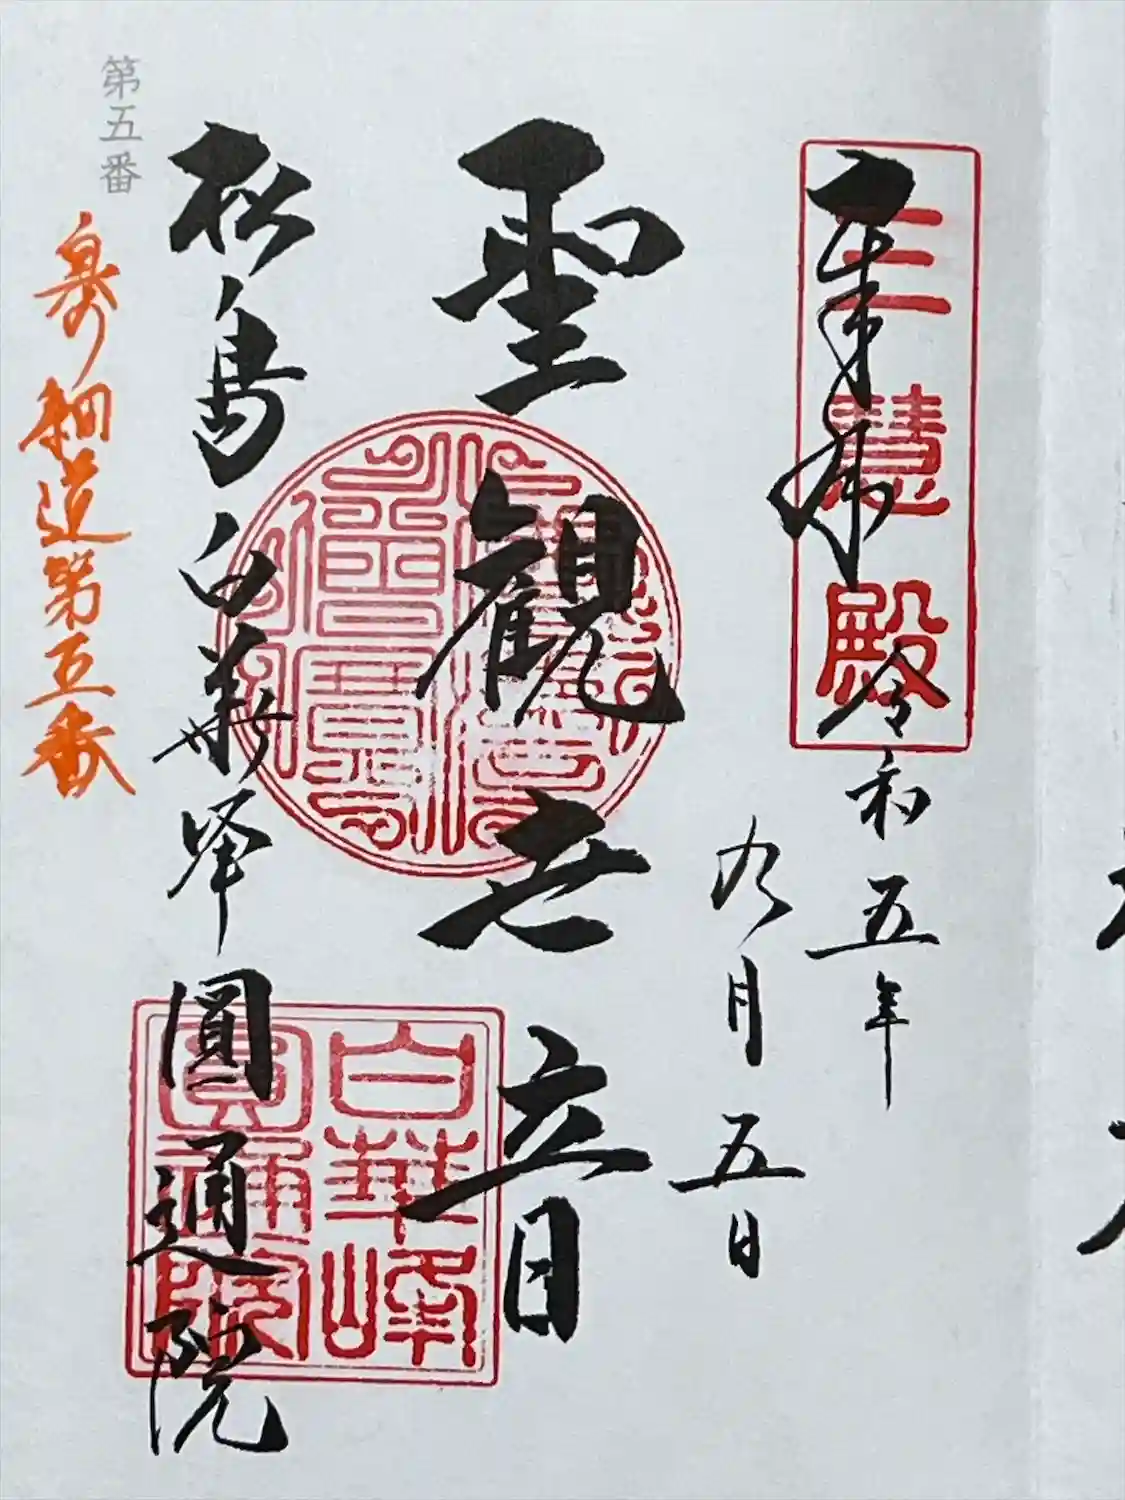 奉拝
三慧殿
令和五年
九月五日
聖観世音
松島白華峰圓通院
白華峰
圓通院
第五番
奥の細道第五番